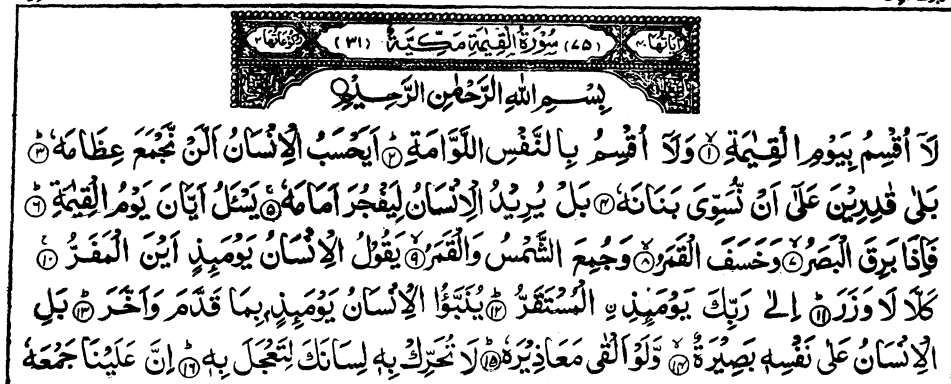 اٰیاتها ۴۰ (۷۵) سُوْرَةُ الْقِیٰمَةِ مَکِّیَّةٌ (۳۱) رکوعاتها ۲
بِسْمِ اللّٰهِ الرَّحْمٰنِ الرَّحِیْمِ
لَاۤ اُقْسِمُ بِیَوْمِ الْقِیٰمَةِ ۱ وَلَاۤ اُقْسِمُ بِالنَّفْسِ اللَّوَّامَةِ ۲ اَیَحْسَبُ الْاِنْسَانُ اَلَّنْ نَّجْمَعَ عِظَامَهٗ ۳
بَلٰی قٰدِرِیْنَ عَلٰۤی اَنْ نُّسَوِّیَ بَنَانَهٗ ۴ بَلْ یُرِیْدُ الْاِنْسَانُ لِیَفْجُرَ اَمَامَهٗ ۵ یَسْـَٔلُ اَیَّانَ یَوْمُ الْقِیٰمَةِ ۶
فَاِذَا بَرِقَ الْبَصَرُ ۷ وَخَسَفَ الْقَمَرُ ۸ وَجُمِعَ الشَّمْسُ وَالْقَمَرُ ۹ یَقُوْلُ الْاِنْسَانُ یَوْمَىِٕذٍ اَیْنَ الْمَفَرُّ ۱۰
کَلَّا لَا وَزَرَ ۱۱ اِلٰی رَبِّكَ یَوْمَىِٕذِ ࣙالْمُسْتَقَرُّ ۱۲ یُنَبَّؤُا الْاِنْسَانُ یَوْمَىِٕذٍۭ بِمَا قَدَّمَ وَاَخَّرَ ۱۳ بَلِ
الْاِنْسَانُ عَلٰی نَفْسِهٖ بَصِیْرَةٌ ۱۴ وَّلَوْ اَلْقٰی مَعَاذِیْرَهٗ ۱۵ لَا تُحَرِّكْ بِهٖ لِسَانَكَ لِتَعْجَلَ بِهٖ ۱۶ اِنَّ عَلَیْنَا جَمْعَهٗ